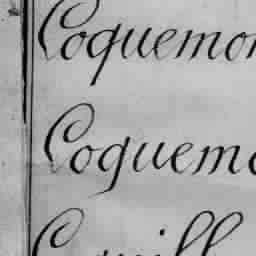 Coquemon
Coquemo
Coquill